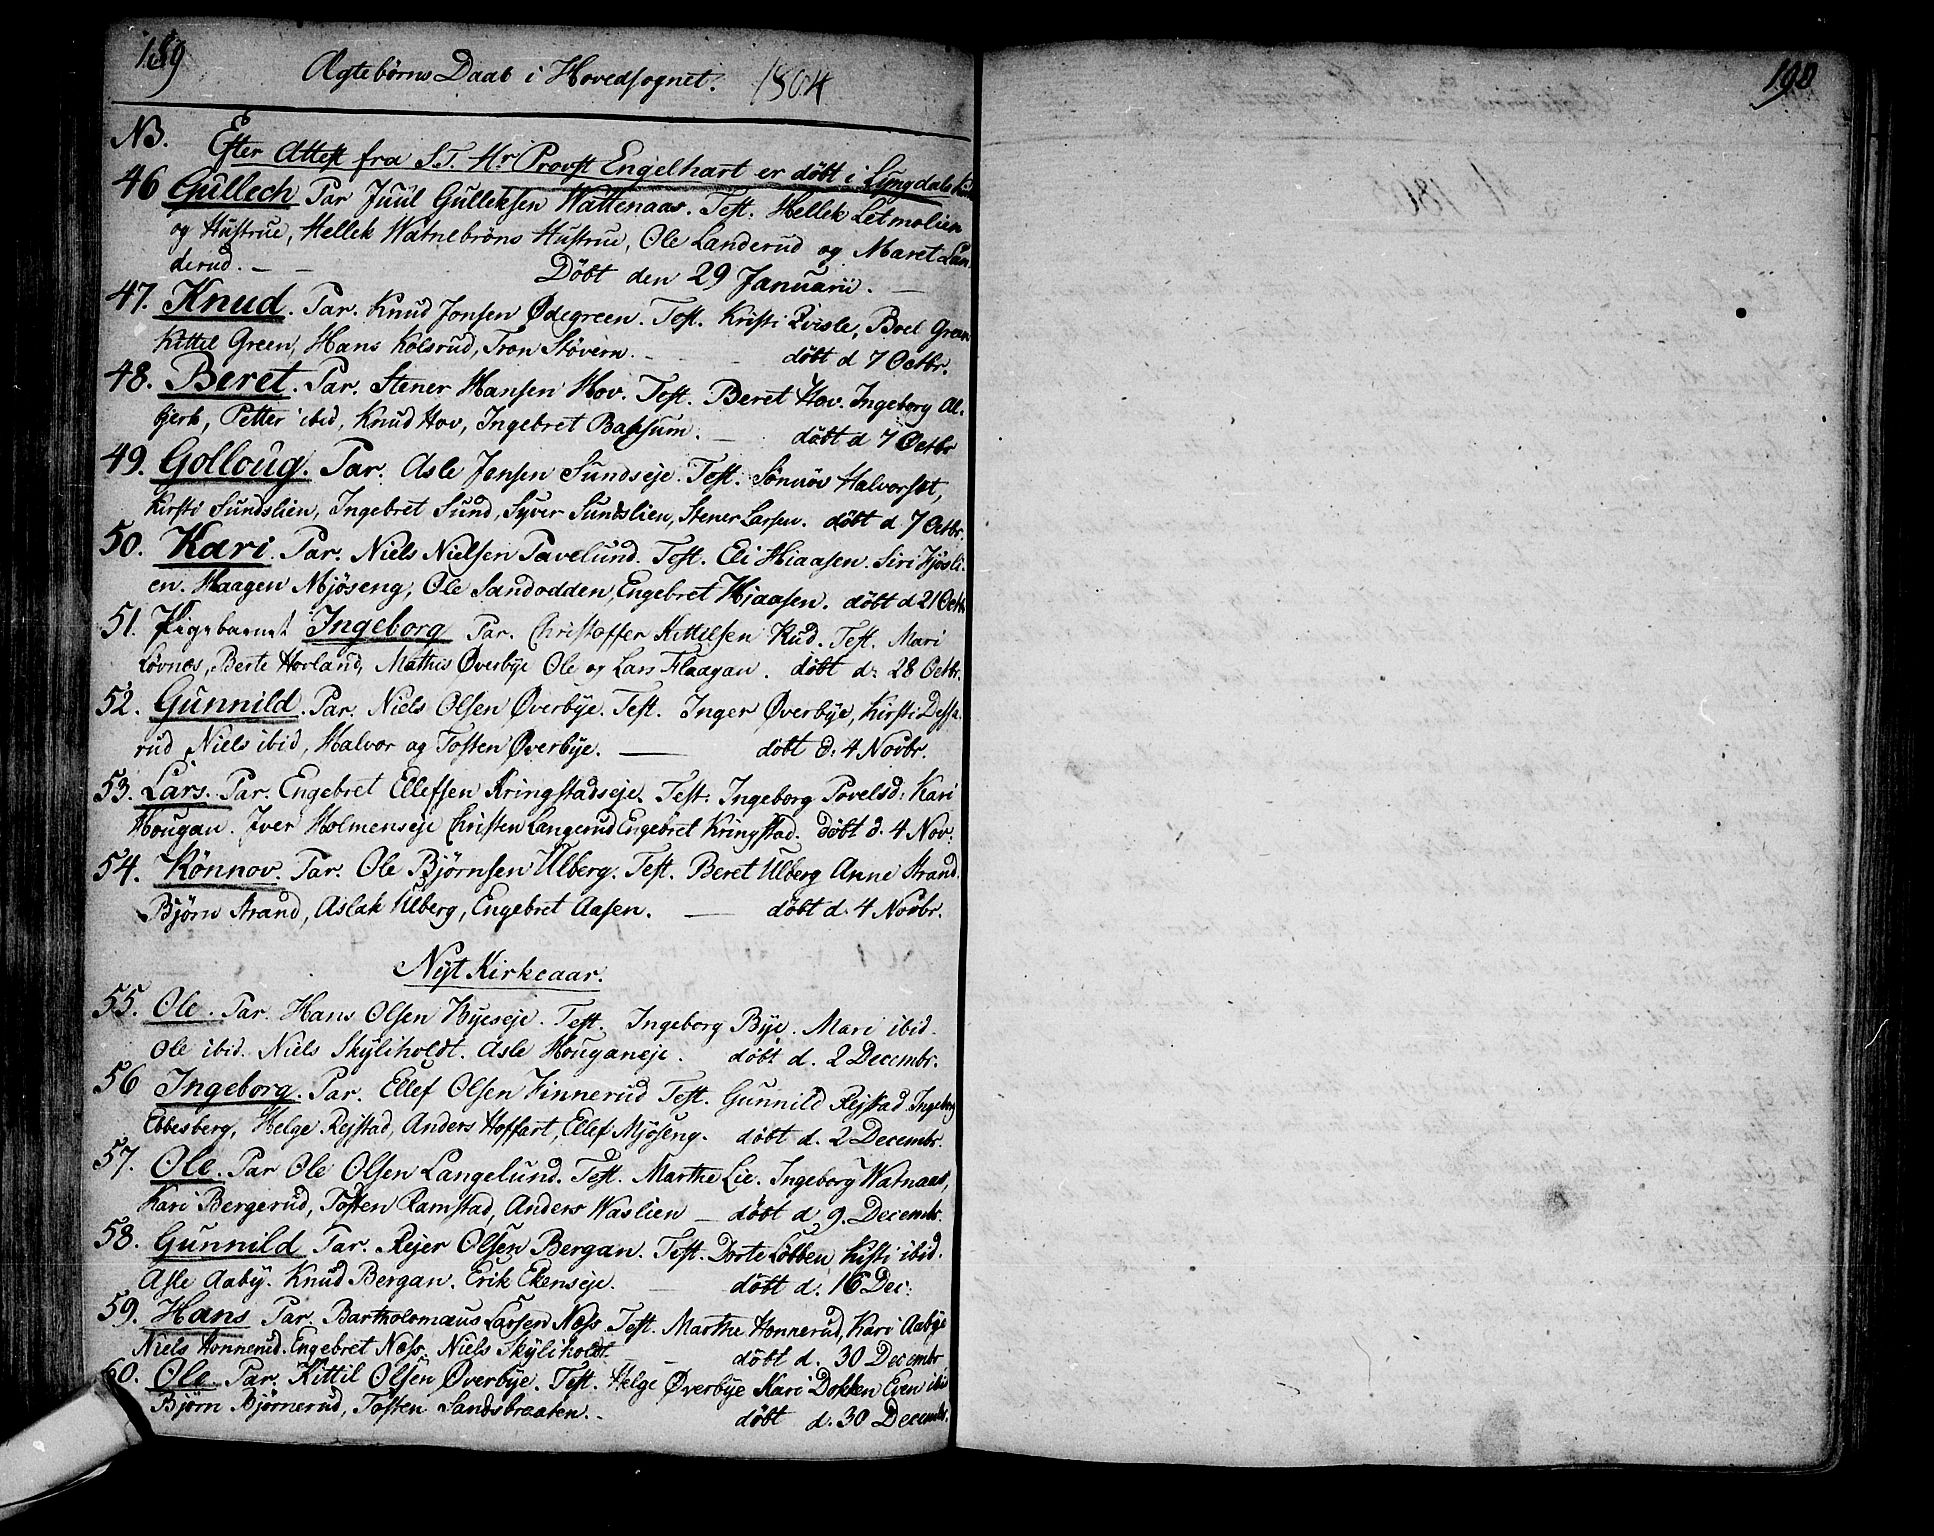 189
Ægtebørns Daab i Hovedsognet. 1804
NB. Efter Attest fra S.T. Hr Provst Engelhart er döbt i Lyngdals
46 Gullech Par Juul Gulleksen Wattenaas. Test. Hellek Letmolien
og Hustrue, Hellek Watnebröns Hustrue, Ole Landerud og Maret Lan
derud. — — Döbt den 29 Januarii. —
47. Knud. Par. Knud Jonsen Ødegreen. Test. Kristi Qvisle, Boel Green
Kittil Green, Hans Kolsrud, Tron Stövern. — — döbt d 7 Octbr.
48. Beret. Par. Stener Hansen Hov. Test. Beret Hov. Ingeborg Al.
bjerk, Petter ibid, Knud Hov, Ingebret Baksum. — döbt d 7 Octbr
49. Golloug. Par. Asle Jensen Sundseje. Test. Sönnöv Halvorset,
Kirsti Sundslien, Ingebret Sund, Syver Sundslien, Stener Larsen. döbt d 7 Octbr.
50. Kari. Par. Niels Nielsen Pavelund. Test. Eli Hiaasen. Siri Kjösli.
en. Haagen Mjöseng, Ole Sandodden, Engebret Hjaasen. döbt d 21 Octb
51. Pigebarnet Ingeborg Par. Christoffer Kittilsen Rud. Test. Mari
Lovnes, Berte Hovland, Mathis Øverbye Ole og Lars Flaagan. döbt d: 28 Octbr.
52. Gunnild. Par. Niels Olsen Øverbye. Test. Inger Øverbye, Kirsti Desse.
rud Niels ibid, Halvor og Tosten Øverbye. — döbt d: 4 Novbr.
53. Lars. Par. Engebret Ellefsen Kringstadseje. Test: Ingeborg Povelsd: Kari
Hougan. Iver Holmenseje Christen Langerud Engebret Kringstad. döbt d. 4 Nov:
54. Rönnov. Par. Ole Björnsen Ulberg. Test. Beret Ulberg Anne Strand.
Björn Strand, Aslak Ulberg, Engebret Aasen. — döbt d. 4 Novbr.
Nyt Kirkeaar.
55. Ole. Par. Hans Olsen Byeseje. Test. Ingeborg Bye. Mari ibid.
Ole ibid. Niels Skyliholdt. Asle Houganeje. döbt d. 2 Decembr.
56 Ingeborg. Par. Ellef Olsen Finnerud Test. Gunnild Rejstad Ingeborg
Ebbesberg, Helge Rejstad, Anders Hoffart, Ellef Mjöseng. döbt d. 2 Decembr.
57. Ole. Par Ole Olsen Langelund. Test. Marthe Lie. Ingeborg Watnaas,
Kari Bergerud, Tosten Ramstad, Anders Waslien — döbt d 9. Decembr.
58. Gunnild Par. Rejer Olsen Bergan. Test. Dorte Löbben, Kisti ibid.
Asle Aaby. Knud Bergan. Erik Ekenseje. — döbt d. 16 Dec:
59. Hans Par. Bartholomæus Larsen Næss Test. Marthe Honnerud, Kari Aabye
Niels Honnerud. Engebret Næss. Niels Skyliholdt. — döbt d. 30 Decembr
60. Ole. Par. Kittil Olsen Øverbye. Test. Helge Øverbye Kari Dokken Even ibid
Björn Björnerud, Tosten Sandsbraaten. döbt d: 30 Decembr.
190